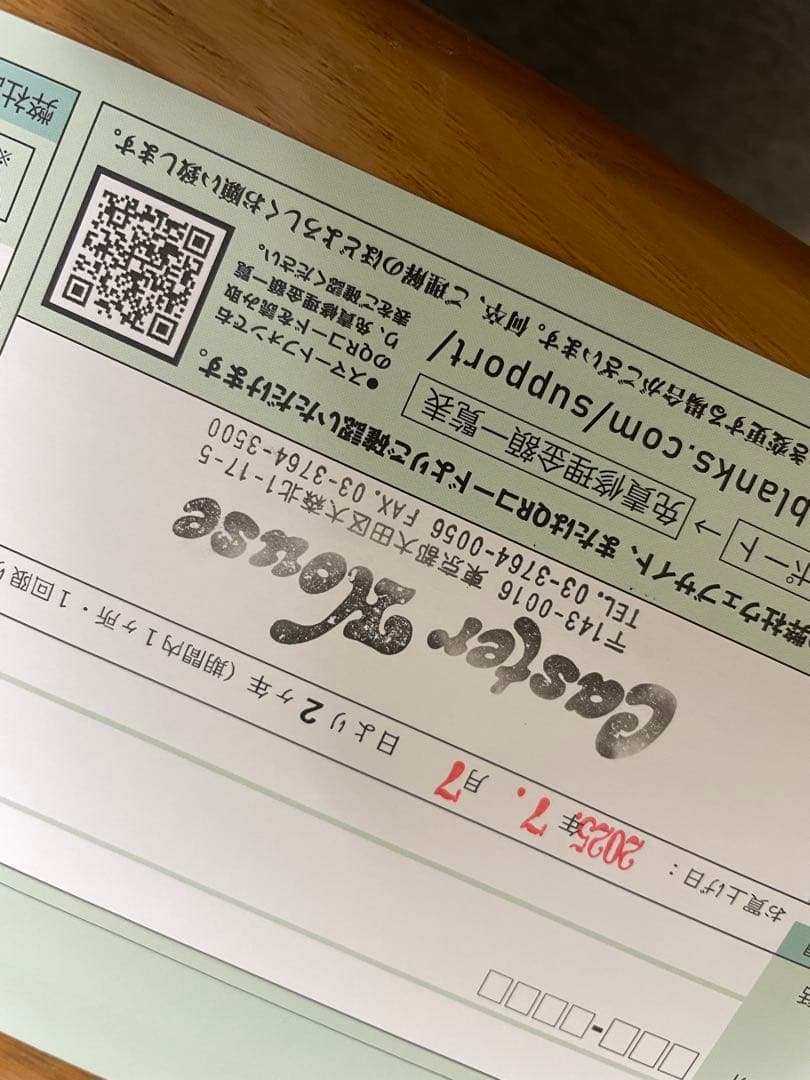 お買上げ日： 2025年 7. 月 7 日より2ヶ年（期間内1ヶ所・1回限り
Caster House
〒143-0016 東京都大田区大森北1-17-5
TEL. 03-3764-0056 FAX. 03-3764-3500
弊社ウェブサイト、またはQRコードよりご確認いただけます。
ポート → 免責修理金額一覧表
blanks.com/support/
●スマートフォンで右
のQRコードを読み取
り、免責修理金額一覧
表をご確認ください。
き変更する場合がございます。何卒、ご理解のほどよろしくお願い致します。
※
弊社